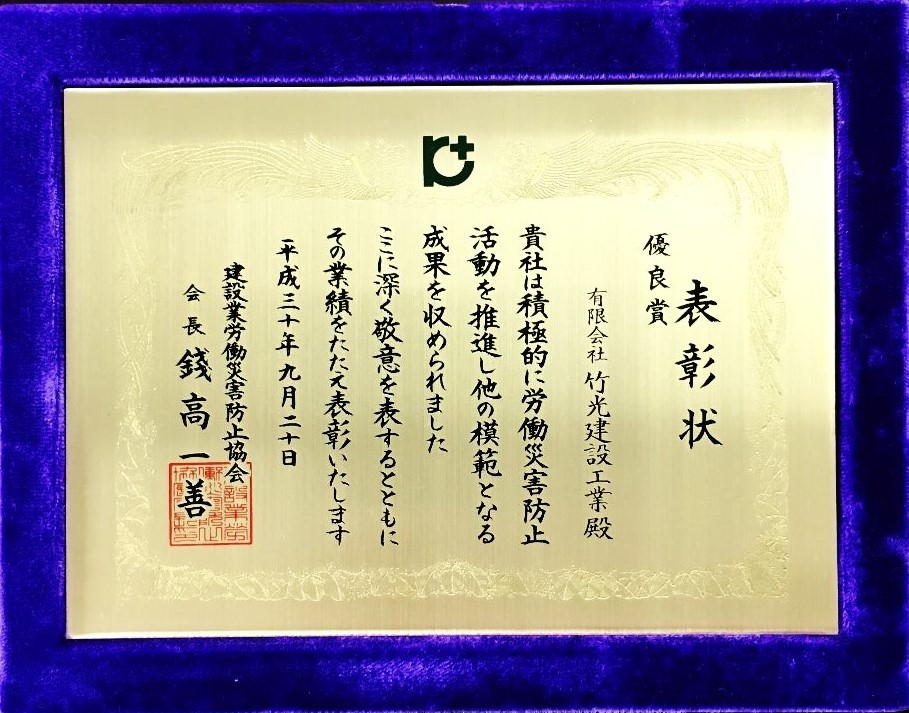 表彰状
優良賞
有限会社 竹光建設工業殿
貴社は積極的に労働災害防止
活動を推進し他の模範となる
成果を収められました
ここに深く敬意を表するとともに
その業績をたたえ表彰いたします
平成三十年九月二十日
建設業労働災害防止協会
会長 錢高一善